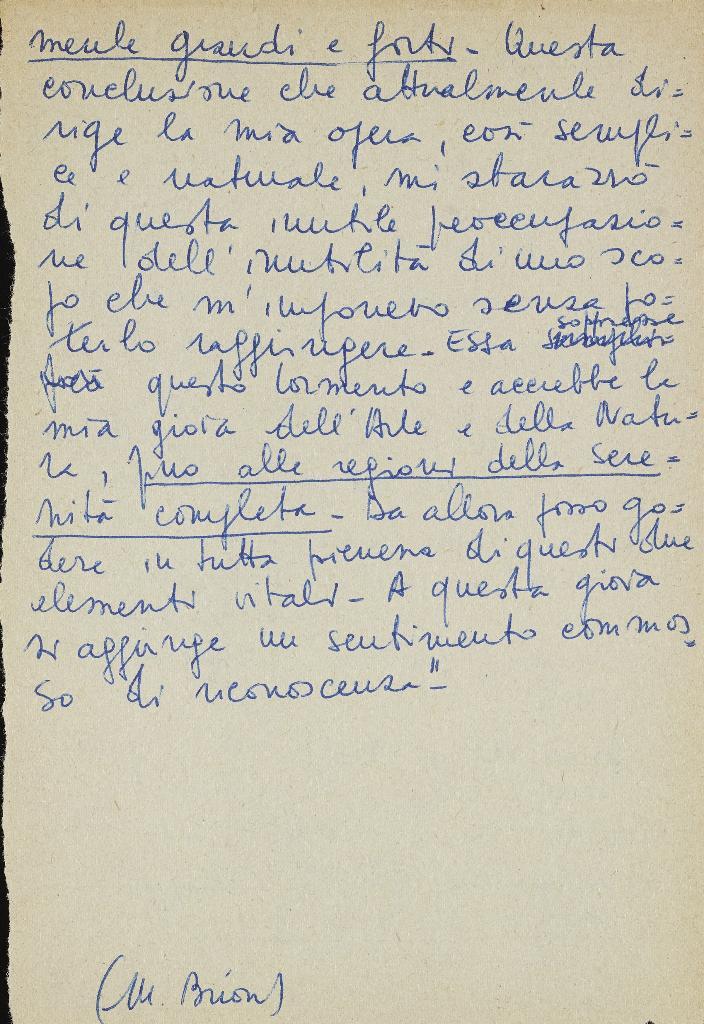 mente grandi e forti - Questa
conclusione che attualmente di=
rige la mia opera, così sempli=
ce e naturale, mi sbarazzò
di questa inutile preoccupazio=
ne dell'inutilità di uno sco=
po che m'imponevo senza po=
terlo raggiungere - Essa soppresse
questo tormento e accrebbe la
mia gioia dell'Arte e della Natu=
ra, fino alle regioni della Sere=
nità completa - Da allora posso go=
dere in tutta pienezza di questi due
elementi vitali - A questa gioia
si aggiunge un sentimento commos=
so di riconoscenza" -
(M. Brion)